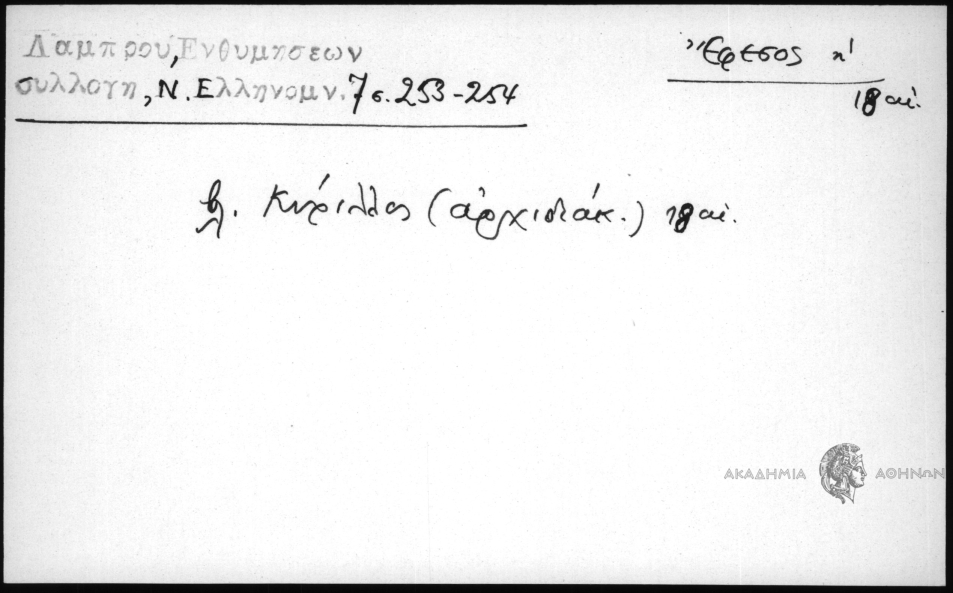 Λαμπρου, Ενθυμησεων
συλλογη, Ν. Ελληνομν. 7 σ. 253-254
Ἔφεσος η'
18 αἰ.
βλ. Κύριλλος (ἀρχιδιάκ.) 18 αἰ.
ΑΚΑΔΗΜΙΑ ΑΘΗΝΩΝ